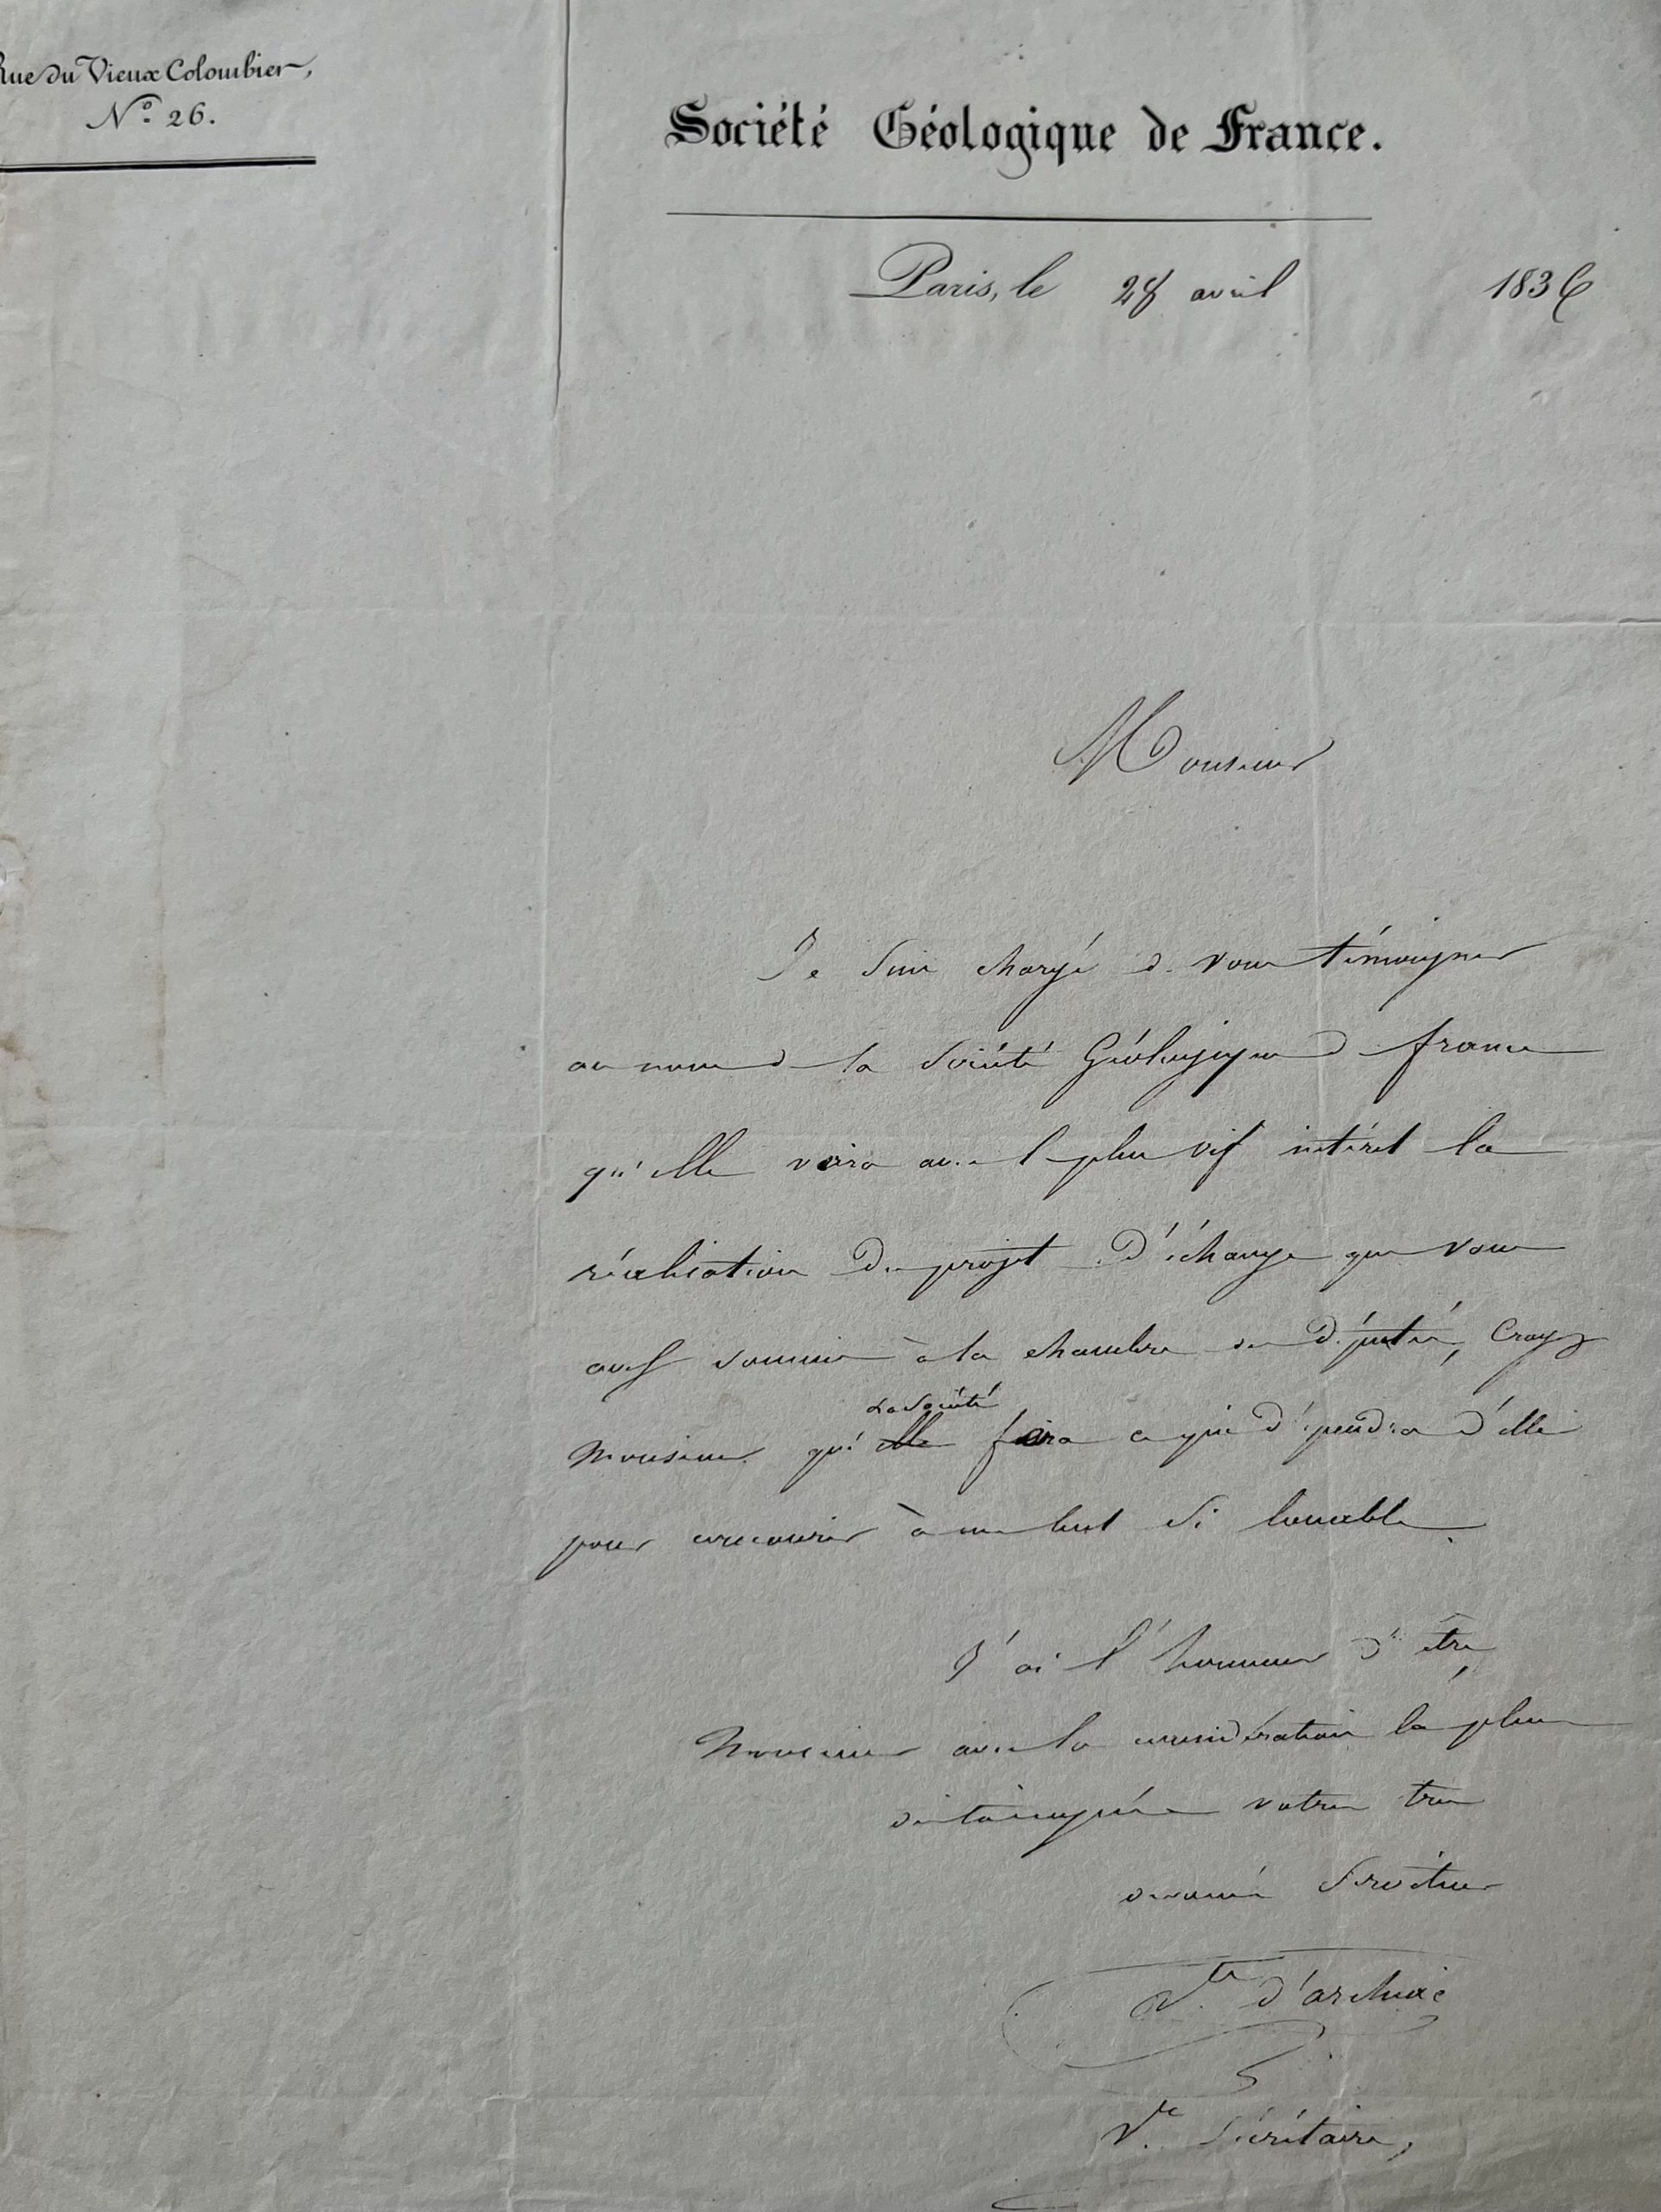 Rue du Vieux Colombier,
N.º 26.
Société Géologique de France.
Paris, le 28 avril 1836
Monsieur
Je suis chargé de vous témoigner
au nom de la Société Géologique de france
qu'elle verra avec le plus vif intérêt la
réalisation du projet d'échange que vous
avez soumis à la chambre des Députés, Croyez
la Société
Monsieur qu'elle fera ce qui dépendra d'elle
pour concourir à un but si louable.
J'ai l'honneur d'être,
Monsieur avec la considération la plus
distinguée votre très
dévoué Serviteur
V.te d'archiac
V.ce Sécrétaire,